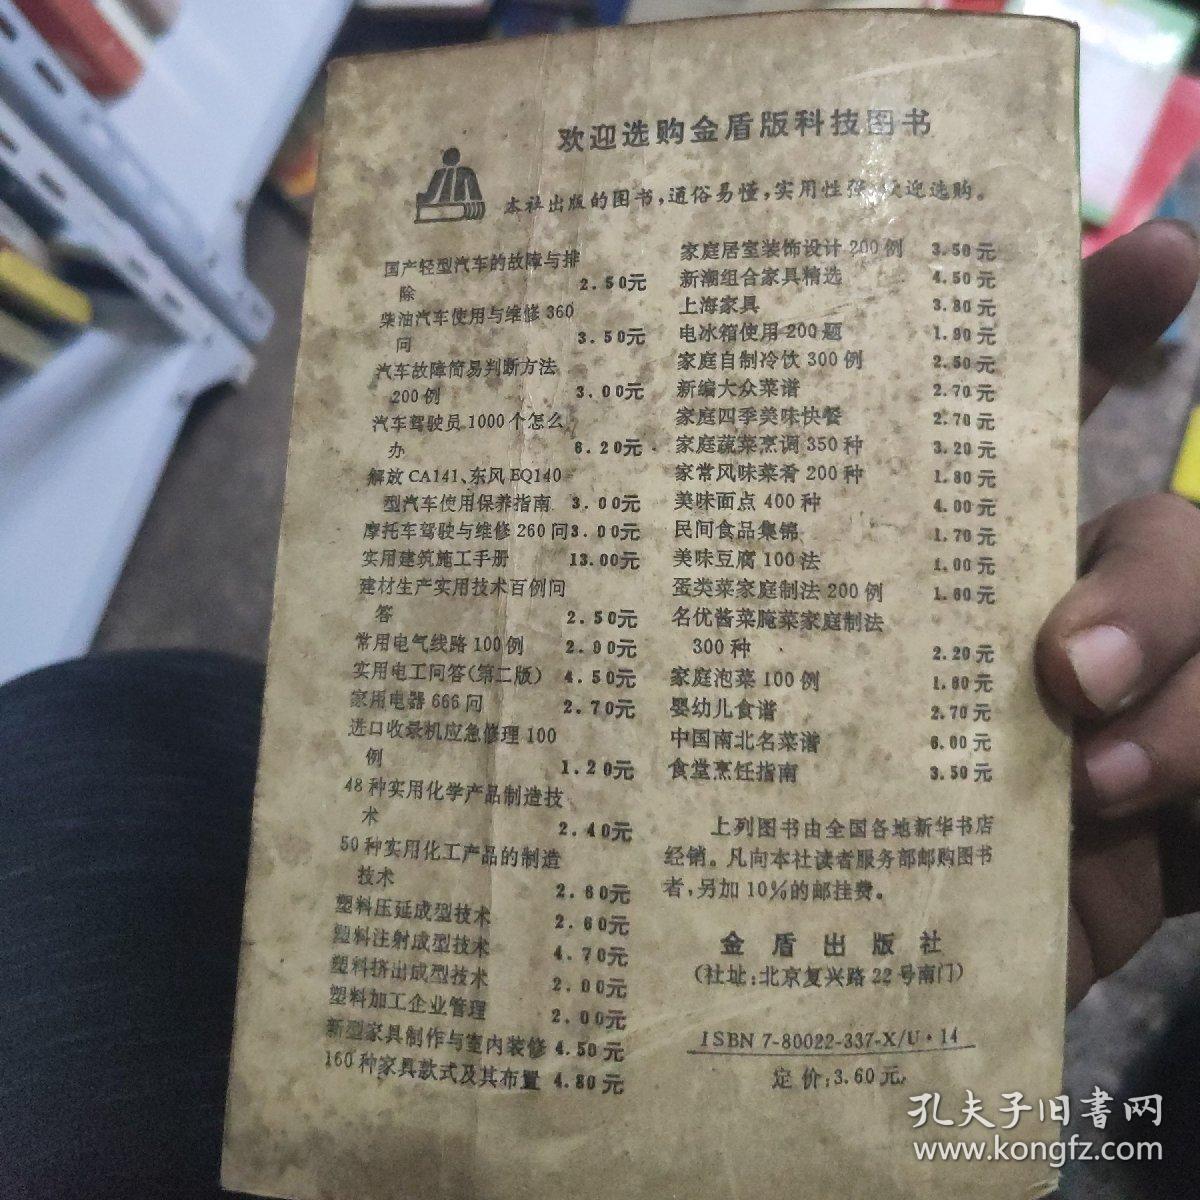 欢迎选购金盾版科技图书
本社出版的图书,通俗易懂,实用性强,欢迎选购。
国产轻型汽车的故障与排
除 2.50元
柴油汽车使用与维修360
问 3.50元
汽车故障简易判断方法
200例 3.00元
汽车驾驶员1000个怎么
办 6.20元
解放CA141、东风EQ140
型汽车使用保养指南 3.00元
摩托车驾驶与维修260问3.00元
实用建筑施工手册 13.00元
建材生产实用技术百例问
答 2.50元
常用电气线路100例 2.90元
实用电工问答(第二版) 4.50元
家用电器666问 2.70元
进口收录机应急修理100
例 1.20元
48种实用化学产品制造技
术 2.40元
50种实用化工产品的制造
技术 2.60元
塑料压延成型技术 2.60元
塑料注射成型技术 4.70元
塑料挤出成型技术 2.00元
塑料加工企业管理 2.00元
新型家具制作与室内装修 4.50元
160种家具款式及其布置 4.80元
家庭居室装饰设计200例 3.50元
新潮组合家具精选 4.50元
上海家具 3.80元
电冰箱使用200题 1.80元
家庭自制冷饮300例 2.50元
新编大众菜谱 2.70元
家庭四季美味快餐 2.70元
家庭蔬菜烹调350种 3.20元
家常风味菜肴200种 1.80元
美味面点400种 4.00元
民间食品集锦 1.70元
美味豆腐100法 1.00元
蛋类菜家庭制法200例 1.60元
名优酱菜腌菜家庭制法
300种 2.20元
家庭泡菜100例 1.80元
婴幼儿食谱 2.70元
中国南北名菜谱 6.00元
食堂烹饪指南 3.50元
上列图书由全国各地新华书店
经销。凡向本社读者服务部邮购图书
者,另加10%的邮挂费。
金盾出版社
(社址:北京复兴路22号南门)
ISBN 7-80022-337-X/U·14
定价:3.60元
孔夫子旧书网
www.kongfz.com